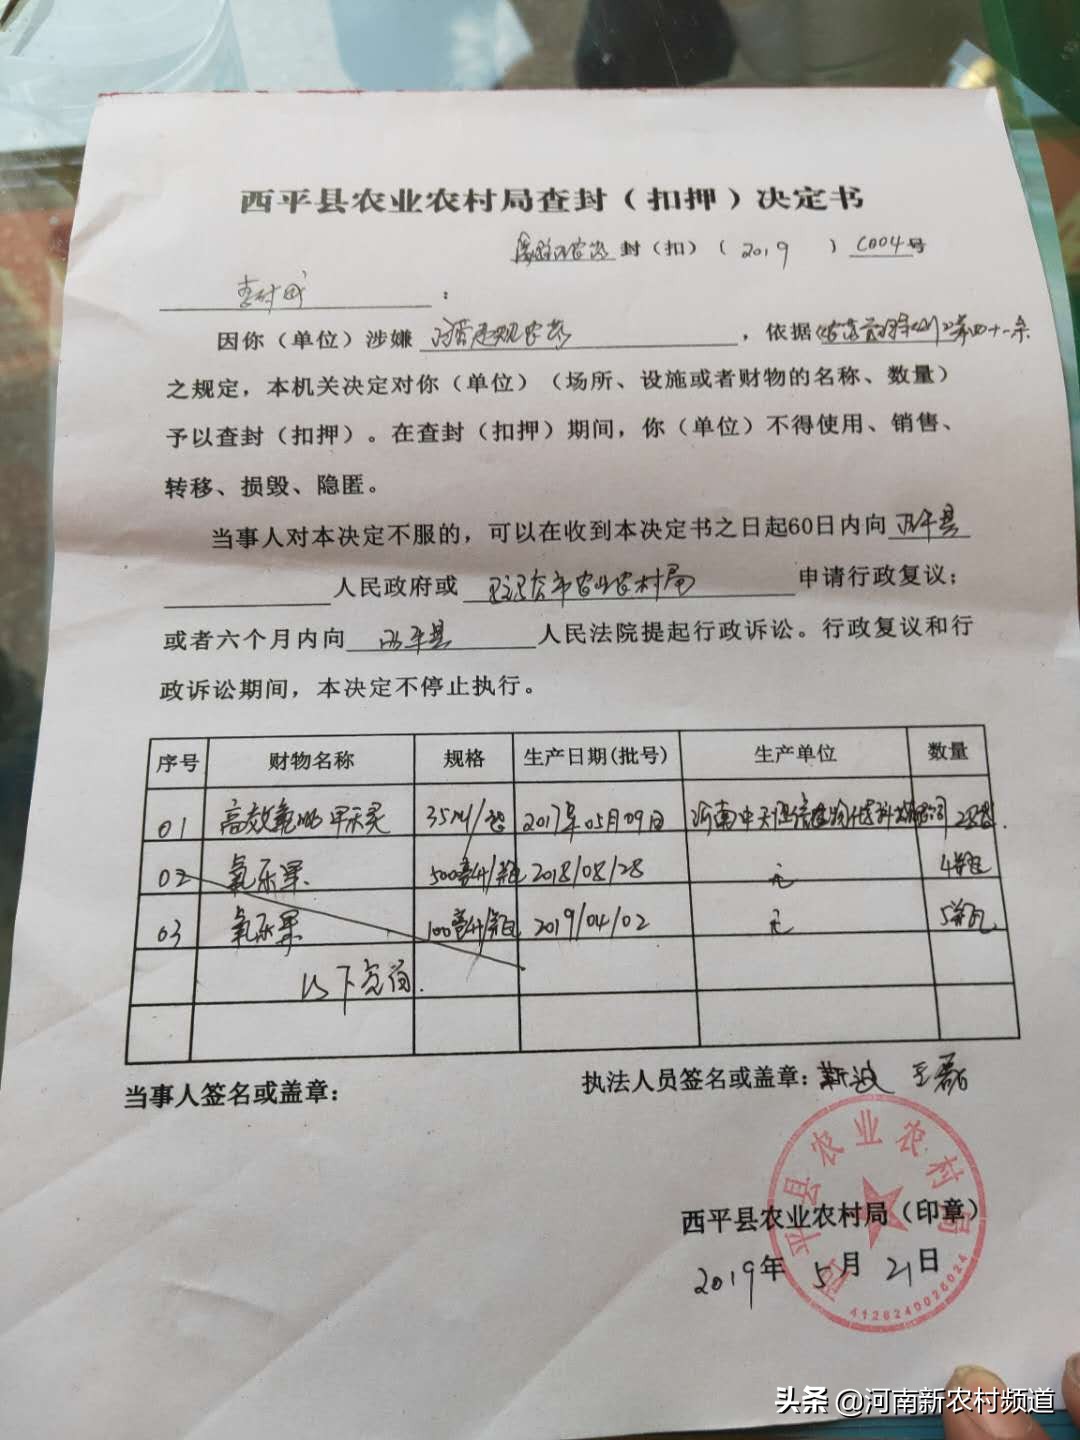 西平县农业农村局查封（扣押）决定书
封（扣）（2019）C004号
：
因你（单位）涉嫌 ，依据 第四十一条
之规定，本机关决定对你（单位）（场所、设施或者财物的名称、数量）
予以查封（扣押）。在查封（扣押）期间，你（单位）不得使用、销售、
转移、损毁、隐匿。
当事人对本决定不服的，可以在收到本决定书之日起60日内向西平县
人民政府或驻马店市农业农村局申请行政复议；
或者六个月内向西平县人民法院提起行政诉讼。行政复议和行
政诉讼期间，本决定不停止执行。
序号 财物名称 规格 生产日期(批号) 生产单位 数量
01 高效氟吡甲禾灵 35ml/袋 2017年05月09日 河南中天恒信生物化学科技有限公司
02 氧乐果 500毫升/瓶 2018/08/28 无 4瓶
03 氧乐果 100毫升/瓶 2019/04/02 无 5瓶
以下空白.
当事人签名或盖章： 执法人员签名或盖章：靳波 王磊
西平县农业农村局
西平县农业农村局（印章）
2019年5月21日
4128240026024
头条 @河南新农村频道